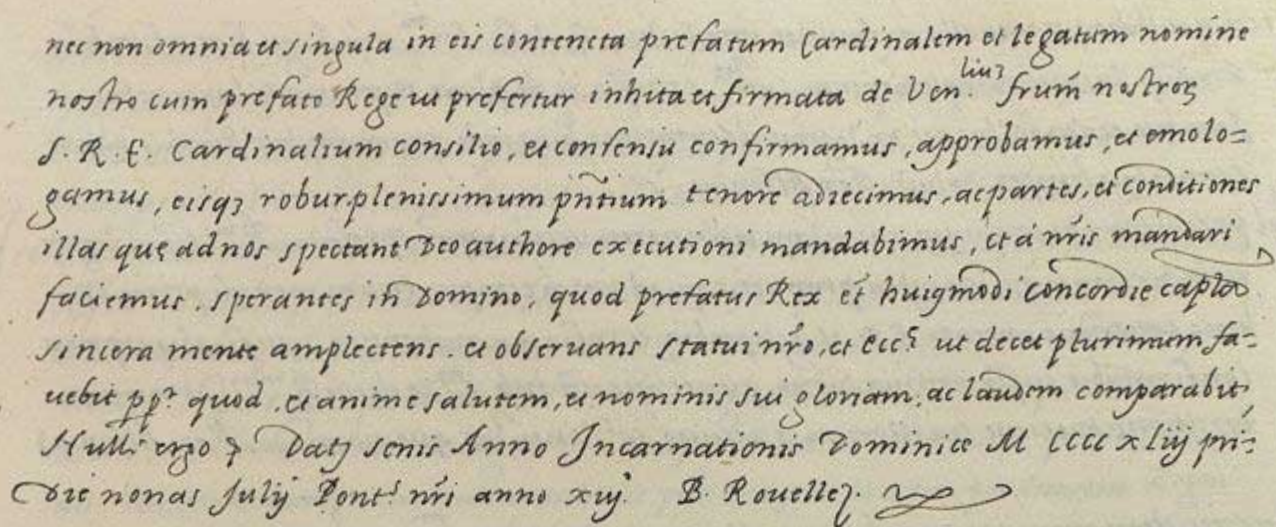 nec non omnia et singula in eis contencta prefatum Cardinalem et legatum nomine
nostro cum prefato Rege ut prefertur inhita et firmata de Ven.liuꝫ frum̃ nostroꝝ
S. R. E. Cardinalium consilio, et consensu confirmamus, approbamus, et emolo=
gamus, eisqꝫ robur plenissimum pñtium tenore adiecimus, ac partes, et conditiones
illas quę ad nos spectant Deo authore executioni mandabimus, et á nr̃is mandari
faciemus. sperantes in Domino, quod prefatus Rex et huiꝰmodi concordie capĺa
sincera mente amplectens. et obseruans statui nr̃o, et eccĩ ut decet plurimum fa=
uebit pp̃ quod, et anime salutem, et nominis sui gloriam, ac laudem comparabit
Nulli ergo ⁊ Datꝫ senis Anno Incarnationis Dominice M cccc xliij pri=
die nonas Julij Pont.s nr̃i anno xiij. B. Rouelleꝫ.